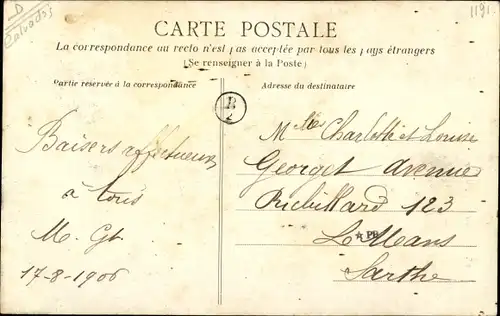 D
Calvados
1191
CARTE POSTALE
La correspondance au recto n'est pas acceptée par tous les pays étrangers
(Se renseigner à la Poste)
Partie réservée à la correspondance
Adresse du destinataire
B
2
Baisers affectueux
à tous
M. Gt
17-8-1906
Mlles Charlotte et Louise
Georget Avenue
Richillard 123
Le Mans
Sarthe